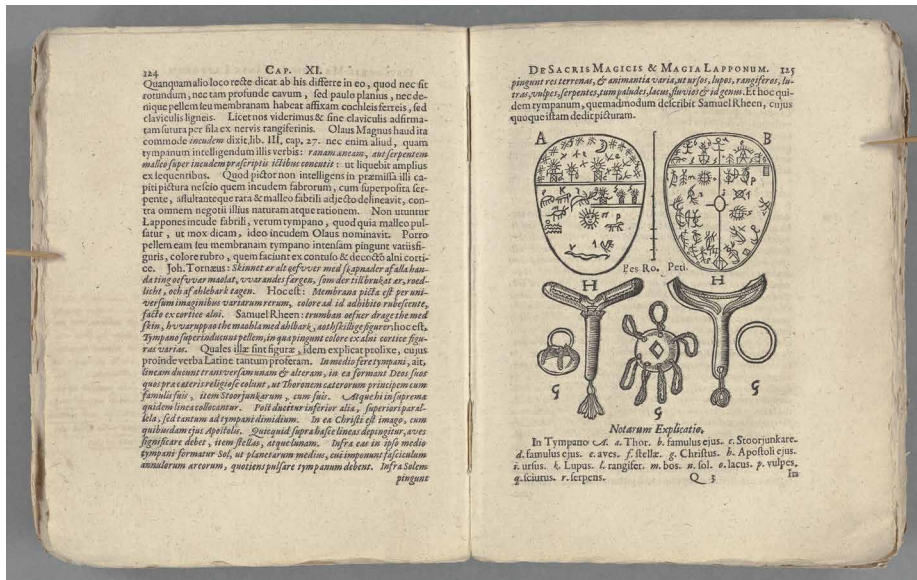 124 CAP. XI.
Quanquam alio loco recte dicat ab his differre in eo, quod nec sit
rotundum, nec tam profunde cavum, sed paulo planius, nec de-
nique pellem seu membranam habeat affixam cochleis ferreis, sed
claviculis ligneis. Licet nos viderimus & sine claviculis adfirma-
tam sutura per fila ex nervis rangiferinis. Olaus Magnus haud ita
commode incudem dixit, lib. III, cap. 27. nec enim aliud, quam
tympanum intelligendum illis verbis: ranam æneam, aut serpentem
malleo super incudem præscriptis ictibus concutit: ut liquebit amplius
ex sequentibus. Quod pictor non intelligens in præmissa illi ca-
piti pictura nescio quem incudem fabrorum, cum superposita ser-
pente, assultanteque rana & malleo fabrili adjecto delineavit, con-
tra omnem negotii illius naturam atque rationem. Non utuntur
Lappones incude fabrili, verum tympano, quod quia malleo pul-
satur, ut mox dicam, ideo incudem Olaus nominavit. Porro
pellem eam seu membranam tympano intensam pingunt variis fi-
guris, colore rubro, quem faciunt ex contuso & decocto alni corti-
ce. Joh. Tornæus: Skinnet är alt
af ahlebark tagen. Hoc est: Membrana picta est per uni-
versum imaginibus variarum rerum, colore ad id adhibito rubescente,
facto ex cortice alni. Samuel Rheen: trumban
skin, hoc est,
Tympano superinducunt pellem, in qua pingunt colore ex alni cortice figu-
ras varias. Quales illæ sint figuræ, idem explicat prolixe, cujus
proinde verba Latine tantum proferam. In medio fere tympani, ait,
lineam ducunt transversam unam & alteram, in ea formant Deos suos
quos præ cæteris religiose colunt, ut Thoronem cæterorum principem cum
famulis suis, item Stoorjunkarum, cum suis. Atque hi in suprema
quidem linea collocantur. Post ducitur inferior alia, superiori paral-
lela, sed tantum ad tympani dimidium. In ea Christi est imago, cum
quibusdam ejus Apostolis. Quicquid supra hasce lineas depingitur, aves
significare debet, item stellas, atque lunam. Infra eas in ipso medio
tympani formatur Sol, ut planetarum medius, cui imponunt fasciculum
annulorum æreorum, quotiens pulsare tympanum debent. Infra Solem
pingunt
DE SACRIS MAGICIS & MAGIA LAPPONUM. 125
pingunt res terrenas, & animantia varia, ut ursos, lupos, rangiferos, lu-
tras, vulpes, serpentes, tum paludes, lacus, fluvios & id genus. Et hoc qui-
dem tympanum, quemadmodum describit Samuel Rheen, cujus
quoque istam dedit picturam.
A B
Pes Ro. Peti.
H H
G G G
Notarum Explicatio.
In Tympano A. a. Thor. b. famulus ejus. c. Stoorjunkare.
d. famulus ejus. e. aves. f. stellæ. g. Christus. h. Apostoli ejus.
i. ursus. k. Lupus. l. rangifer. m. bos. n. sol. o. lacus. p. vulpes.
q. sciurus. r. serpens. Q 3 In